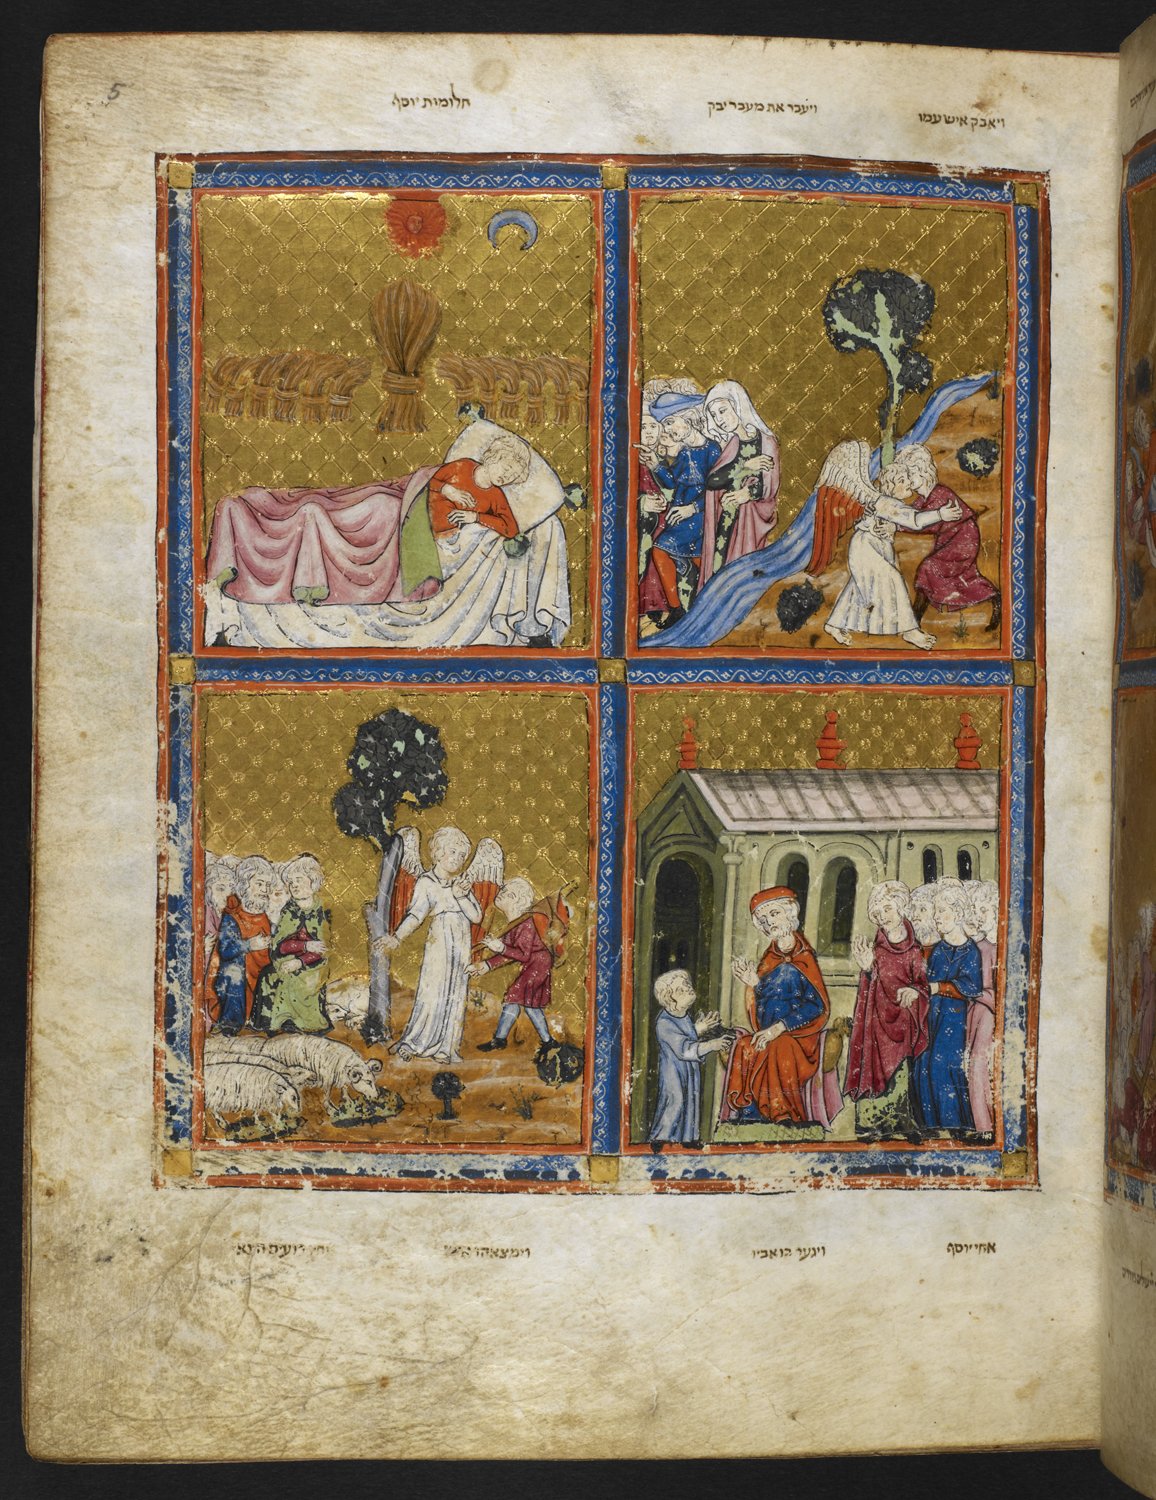 5
ויאבק איש עמו
ויעבר את מעבר יבק
חלומות יוסף
אחי יוסף
ויגער בו אביו
וימצאהו איש
רועים